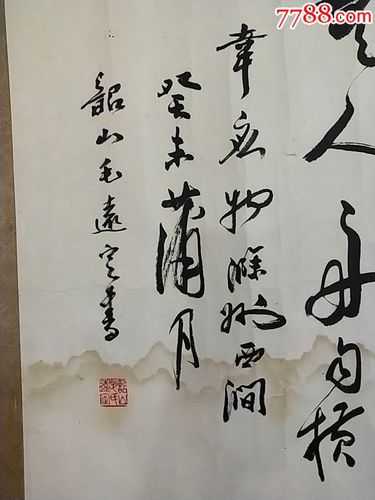 7788.com
无人舟自横
韦应物滁州西涧
癸未蒲月
韶山毛远定书